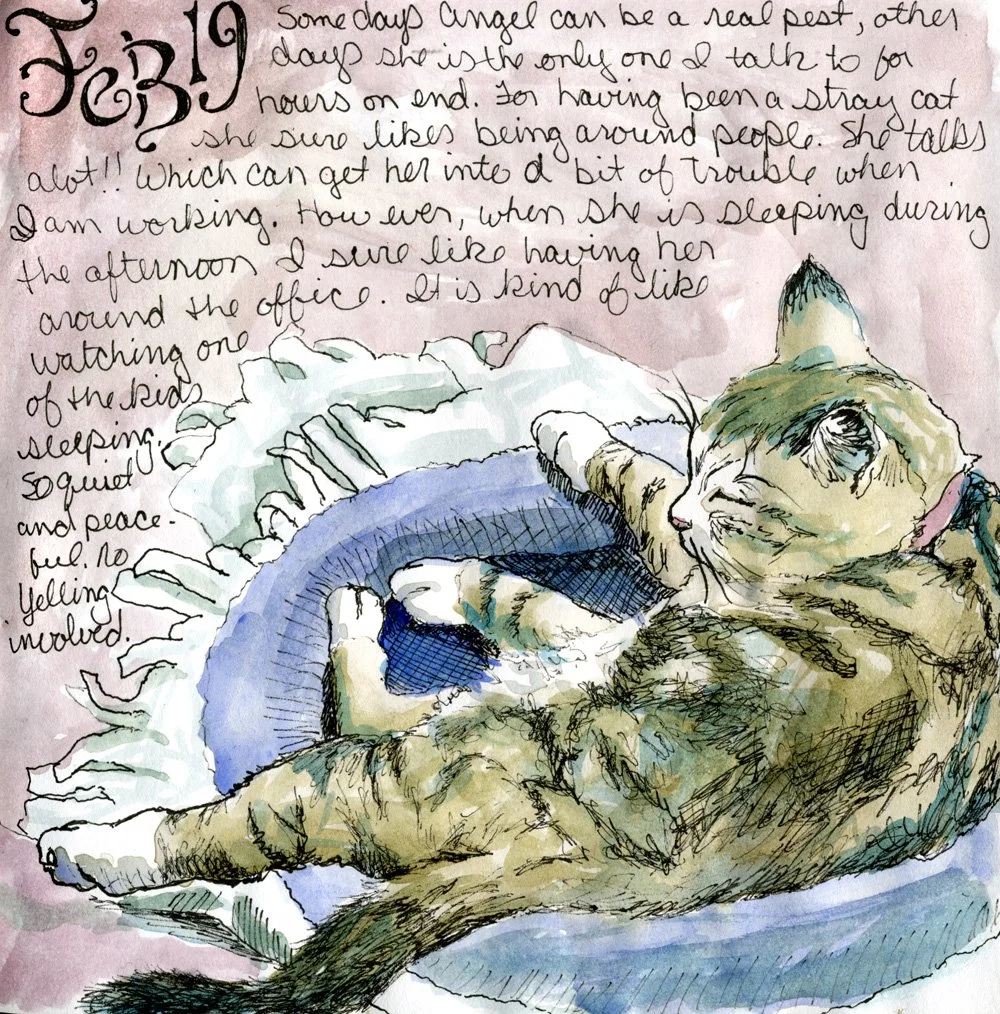 Feb 19
Some days Angel can be a real pest, other
days she is the only one I talk to for
hours on end. For having been a stray cat
she sure likes being around people. She talks
alot!! Which can get her into a bit of trouble when
I am working. How ever, when she is sleeping during
the afternoon I sure like having her
around the office. It is kind of like
watching one
of the kids
sleeping.
So quiet
and peace-
ful. No
Yelling
involved.